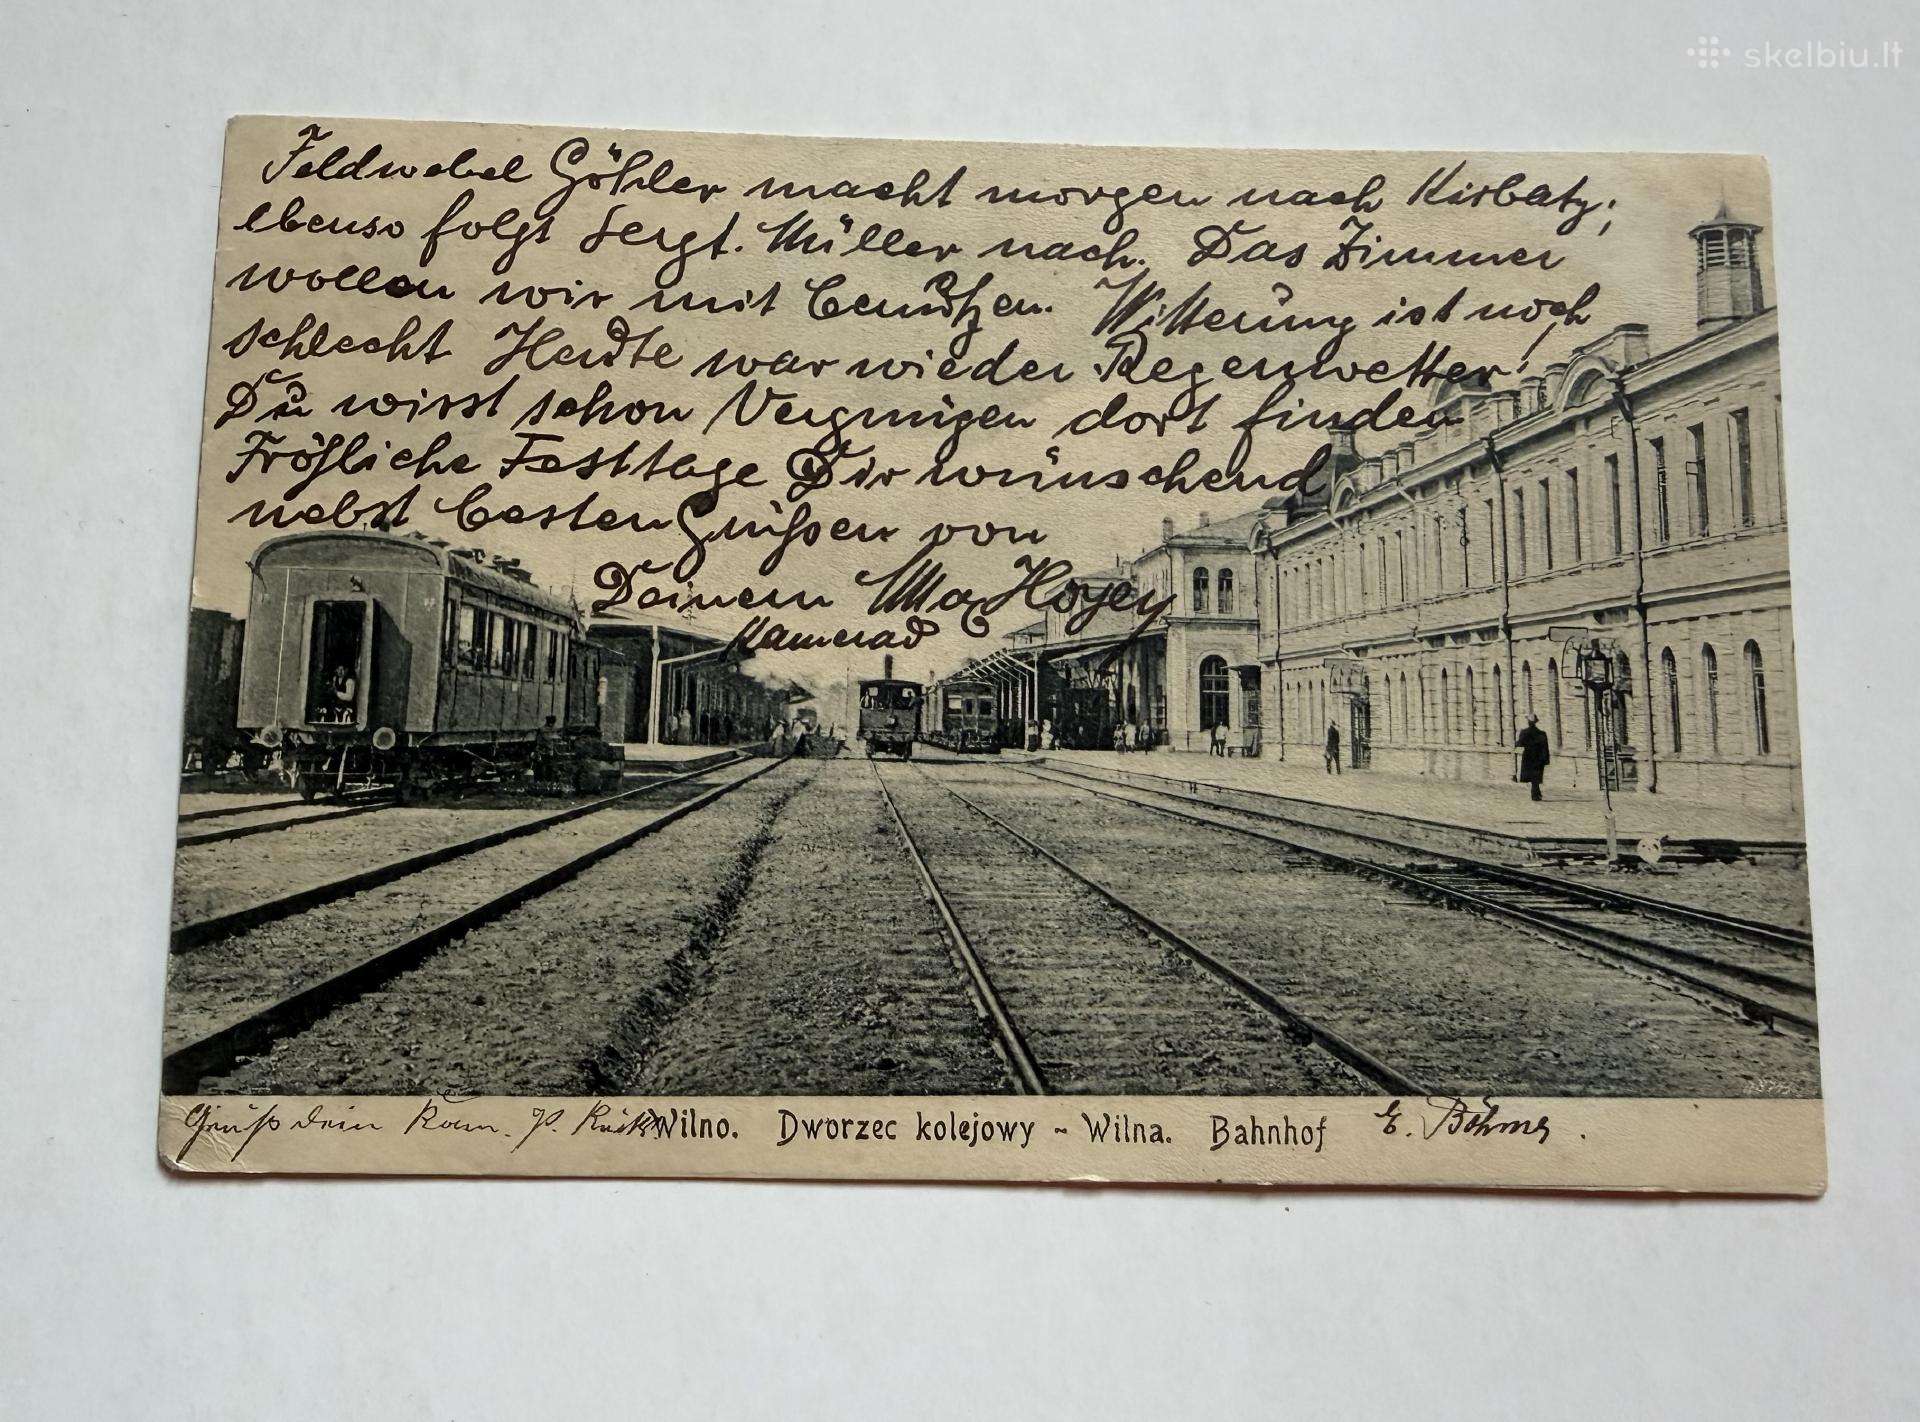 skelbiu.lt
Feldwebel Göhler macht morgen nach Kirbaty;
ebenso folgt Sergt. Müller nach. Das Zimmer
wollen wir mit benützen. Witterung ist noch
schlecht Heute war wieder Regenwetter!
Du wirst schon Vergnügen dort finden
Fröhliche Festtage Dir wünschend
nebst besten Grüßen von
Deinem
Kamerad
Gruß dein Kam. P. Wilno. Dworzec kolejowy ~ Wilna. Bahnhof E. Böhme.